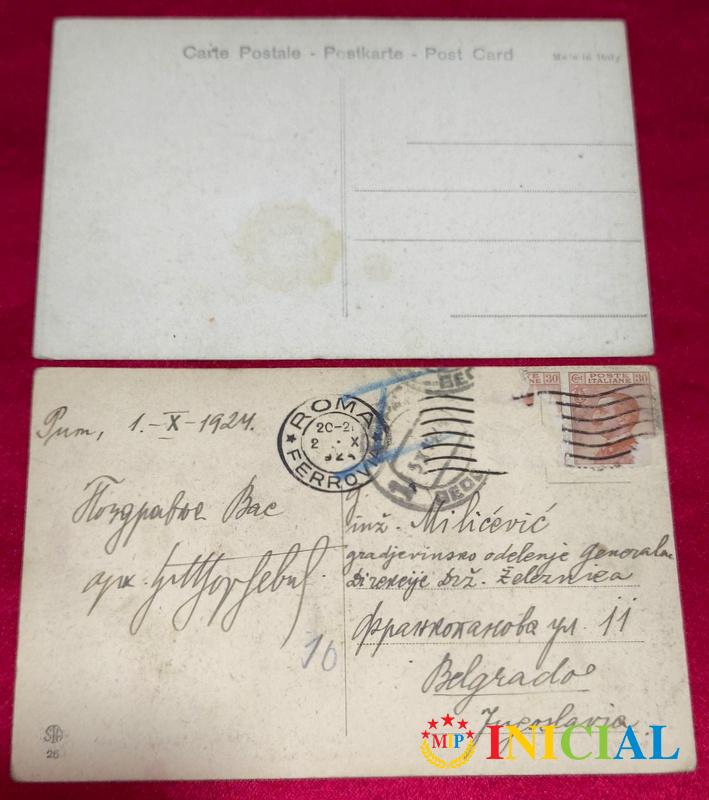 Carte Postale - Postkarte - Post Card
Made in Italy
Рим, 1.-X-1924.
ROMA
20-21
2 X
924
FERROVIA
30
30
POSTE
ITALIANE
Поздравље Вас
арх.
inž. Milićević
gradjevinsko odelenje Generalne
Direkcije Drž. Železnica
Франкопанова ул. 11
Belgrado
Jugoslavia
10
STA
26
MIP INICIAL